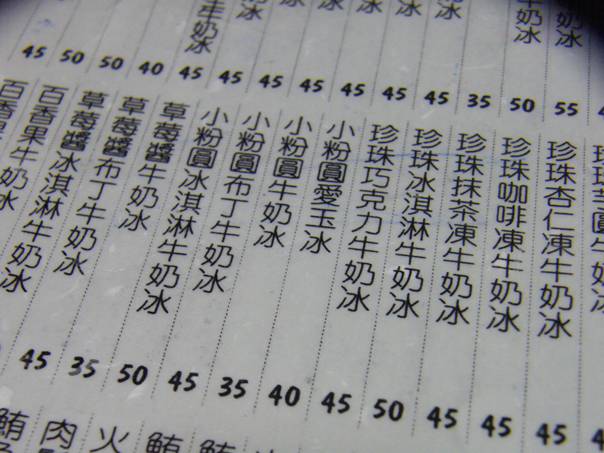 冰
牛奶冰
牛奶冰
45 50 50 40 45 45 45 45 45 45 45 35 50 55
珍珠杏仁凍牛奶冰
珍珠咖啡凍牛奶冰
珍珠抹茶凍牛奶冰
珍珠冰淇淋牛奶冰
珍珠巧克力牛奶冰
小粉圓愛玉冰
小粉圓牛奶冰
小粉圓布丁牛奶冰
小粉圓冰淇淋牛奶冰
草莓醬冰淇淋牛奶冰
草莓醬牛奶冰
草莓醬布丁牛奶冰
百香果冰淇淋牛奶冰
百香果牛奶冰
45 35 50 45 35 40 45 50 45 45 45
鮪 肉 火 鮪 鮪